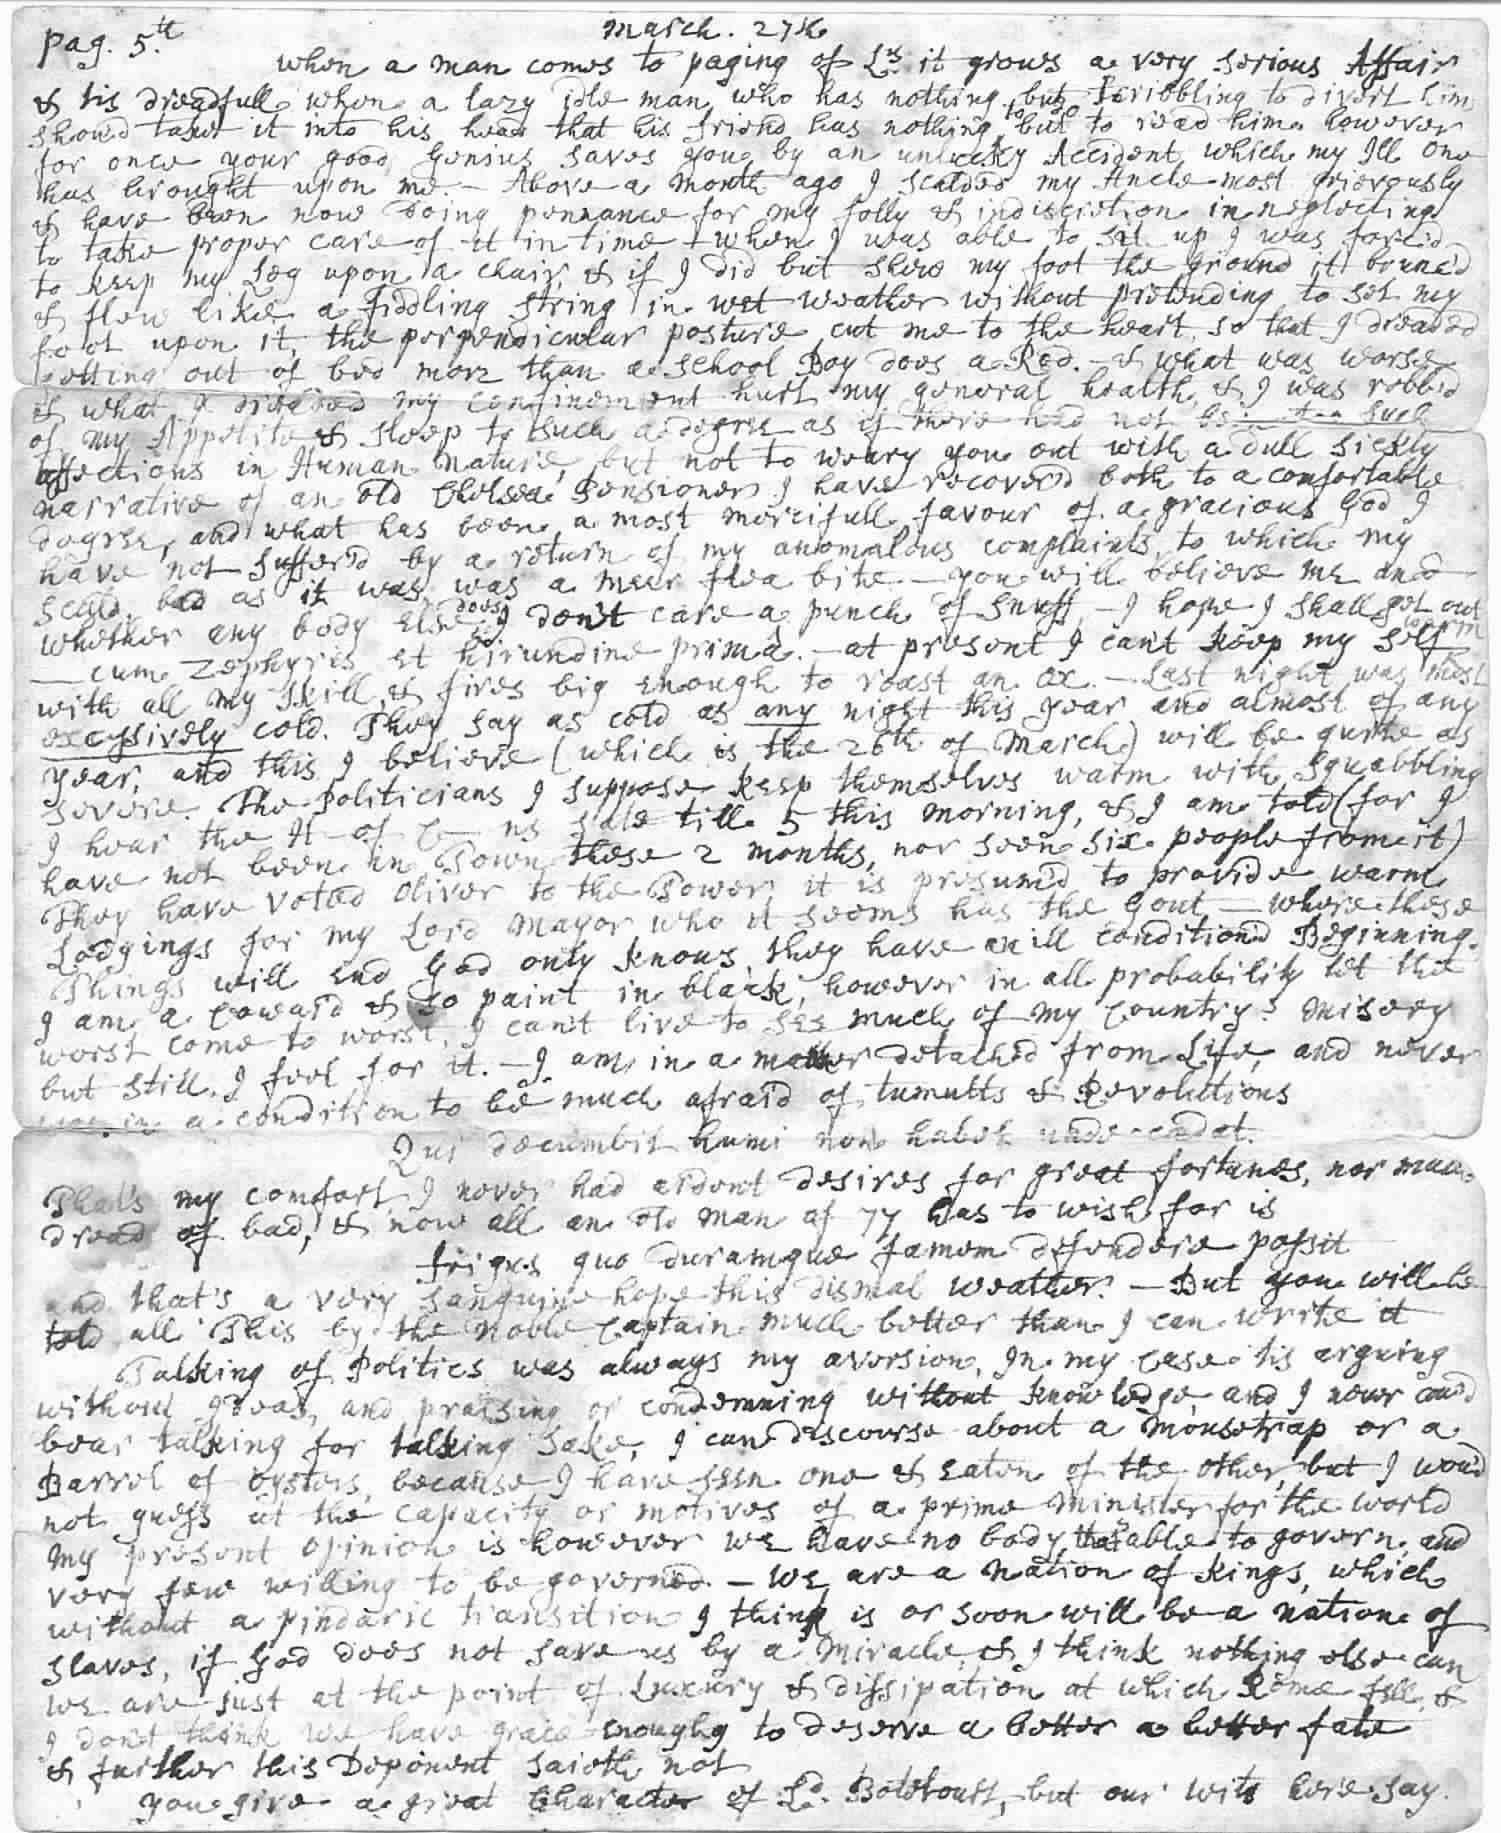 pag. 5.th
March. 27th
when a man comes to paging of Lrs it grows a very serious Affair
& tis dreadfull when a lazy idle man who has nothing but Scribbling to divert him
shou'd take it into his head that his friend has nothing to do but to read him. however
for once your good Genius saves you by an unlucky Accident which my Ill one
has brought upon me. - Above a month ago I scalded my Ancle most grievously
& have been now doing pennance for my folly & indiscretion in neglecting
to take proper care of it in time - when I was able to sit up I was forc'd
to keep my Leg upon a chair, & if I did but shew my foot the ground it bounc'd
& flew like a fiddling string in wet weather without pretending to set my
foot upon it, the perpendicular posture cut me to the heart, so that I dreaded
getting out of bed more than a School Boy does a Rod. - & what was worse
& what I dreaded my confinement hurt my general health, & I was robb'd
of my Appetite & sleep to such a degree as if there had not been such
affections in Human Nature, but not to weary you out with a dull sickly
narrative of an old Chelsea Pensioner I have recover'd both to a comfortable
degree, and what has been a most mercifull favour of a gracious God I
have not suffer'd by a return of my anomalous complaints, to which my
scald, bad as it was was a meer flea bite. - you will believe me and
whether any body else does so I don't care a punch of snuff - I hope I shall get out
- cum Zephyris et hirundine primâ. - at present I can't keep my self warm
with all my skill, & fires big enough to roast an ox. - Last night was most
excessively cold. They say as cold as any night this year and almost of any
year, and this I believe (which is the 26th of March) will be quite as
severe. The Politicians I suppose keep themselves warm with squabbling
I hear the H- of C- ns sate till 5 this morning, & I am told (for I
have not been in Town these 2 months, nor seen six people from it)
They have voted Oliver to the Tower it is presum'd to provide warm
Lodgings for my Lord Mayor who it seems has the Gout - where these
Things will end God only knows they have an ill condition'd Beginning.
I am a Coward & so paint in black, however in all probability let the
worst come to worst, I can't live to see much of my Country's misery
but still I feel for it. - I am in a manner detached from Life, and never
was in a condition to be much afraid of tumults & Revolutions
Qui decumbit humi non habet unde cadat.
That's my comfort, I never had ardent desires for great fortunes, nor much
dread of bad, & now all an old man of 77 has to wish for is
frigus quo duramque famem defendere possit
and that's a very sanguine hope this dismal weather. - But you will be
told all This by the noble Captain much better than I can write it
Talking of Politics was always my aversion, In my case tis arguing
without Ideas, and praising or condemning without knowledge, and I never cou'd
bear talking for talking sake, I can discourse about a Mousetrap or a
Barrel of Oysters, because I have seen one & eaten of the other, but I wou'd
not guess at the capacity or motives of a prime Minister for the world
My present opinion is however we have no body that's able to govern, and
very few willing to be governed - we are a Nation of Kings, which
without a pindaric transition I think is or soon will be a nation of
slaves, if God does not save us by a Miracle, & I think nothing else can
we are just at the point of Luxury & dissipation at which Rome fell, &
I don't think we have grace enough to deserve a better a better fate
& further this Deponent saieth not
You give a great Character of Ld. Botetourt, but our wits here say.